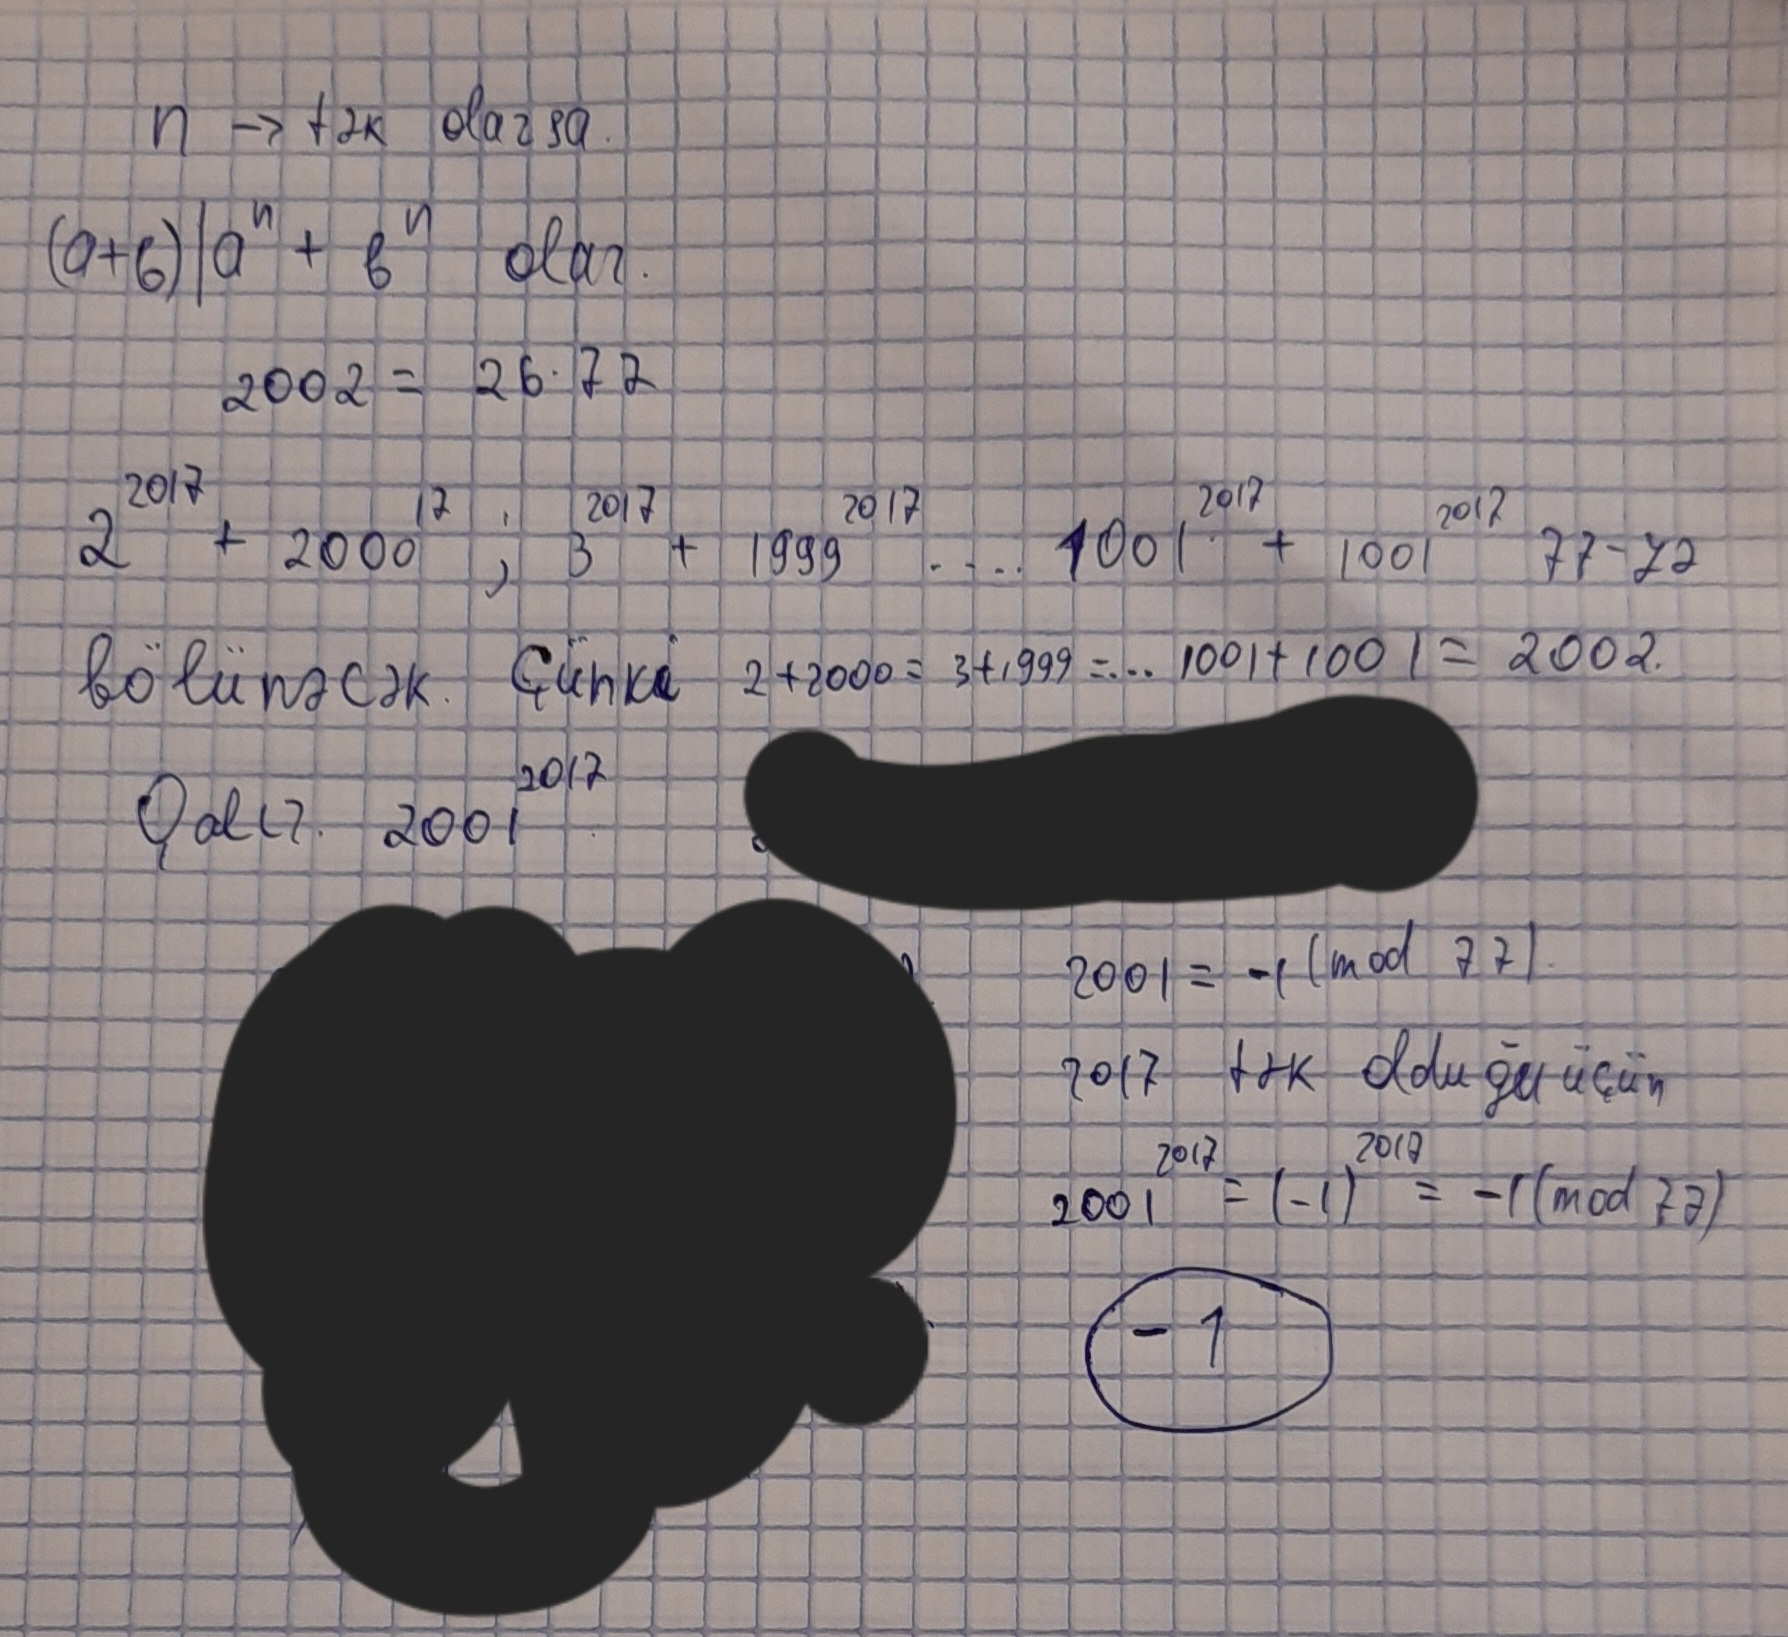 n → tək olarsa.
(a+b)|aⁿ + bⁿ olar.
2002 = 26·77
2²⁰¹⁷ + 2000¹⁷ ; 3²⁰¹⁷ + 1999²⁰¹⁷ .... 1001²⁰¹⁷ + 1001²⁰¹⁷ 77-yə
bölünəcək. Çünki 2+2000 = 3+1999 =... 1001+1001 = 2002.
Qalır. 2001²⁰¹⁷
2001 = -1 (mod 77).
2017 tək olduğu üçün
2001²⁰¹⁷ = (-1)²⁰¹⁷ = -1 (mod 77)
-1